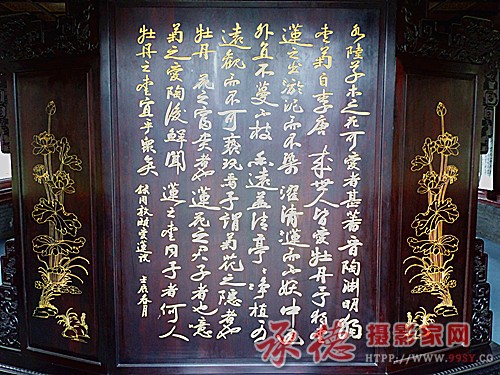 水陸草木之花可愛者甚蕃晉陶淵明獨
愛菊自李唐來世人皆愛牡丹予獨愛
蓮之出淤泥而不染濯清漣而不妖中通
外直不蔓不枝香遠益清亭亭淨植可
遠觀而不可褻玩焉予謂菊花之隱者也
牡丹花之富貴者也蓮花之君子者也噫
菊之愛陶後鮮聞蓮之愛同予者何人
牡丹之愛宜乎眾矣 錄周敦頤愛蓮說 壬辰春月
承德摄影家网
HTTP://WWW.99SY.CO